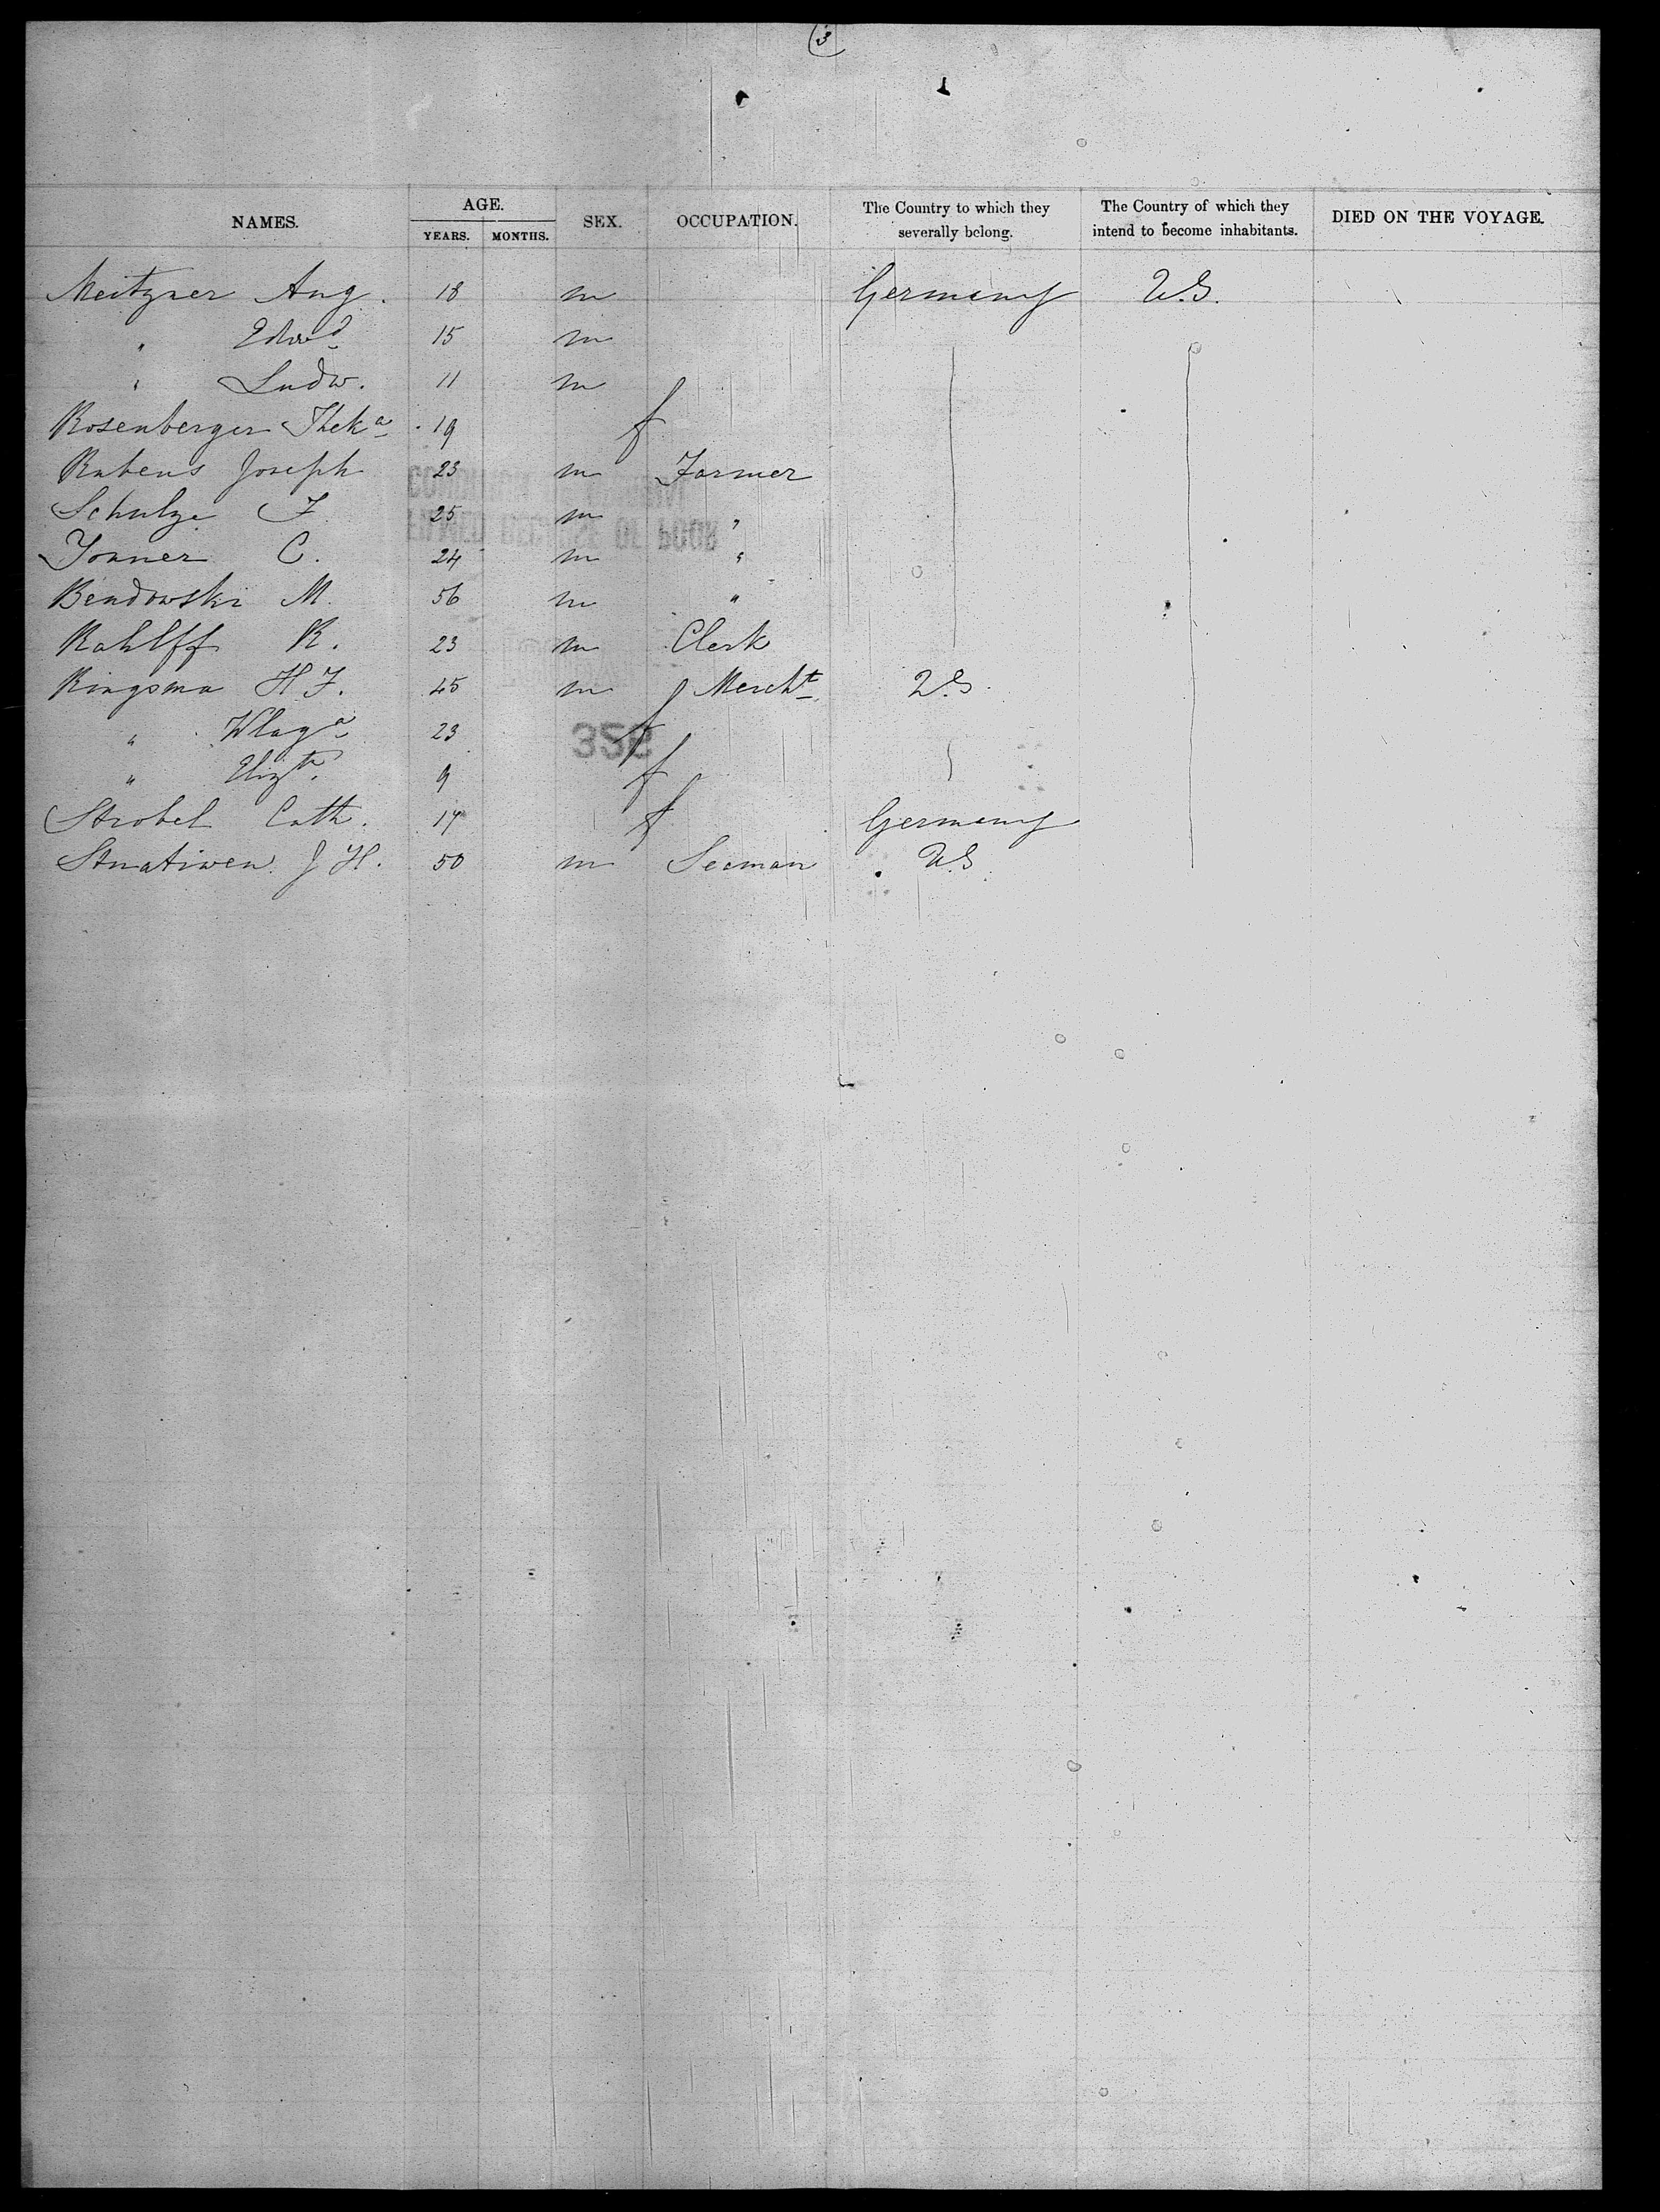 (3
NAMES. AGE. YEARS. MONTHS. SEX. OCCUPATION. The Country to which they severally belong. The Country of which they intend to become inhabitants. DIED ON THE VOYAGE.
Meitzner Aug. 18 m Germany U.S.
" Edwd 15 m
" Ludw. 11 m
Rosenberger Theka 19 f
Rubens Joseph 23 m Farmer
Schulze F. 25 m "
Tonner C. 24 m "
Bendowski M. 56 m "
Rahlff R. 23 m Clerk
Ringsma H F. 45 m Mercht U.S.
" 23 f
" Elizth. 9 f
Strobel Cath. 17 f Germany
J H. 50 m Seeman U.S.
352